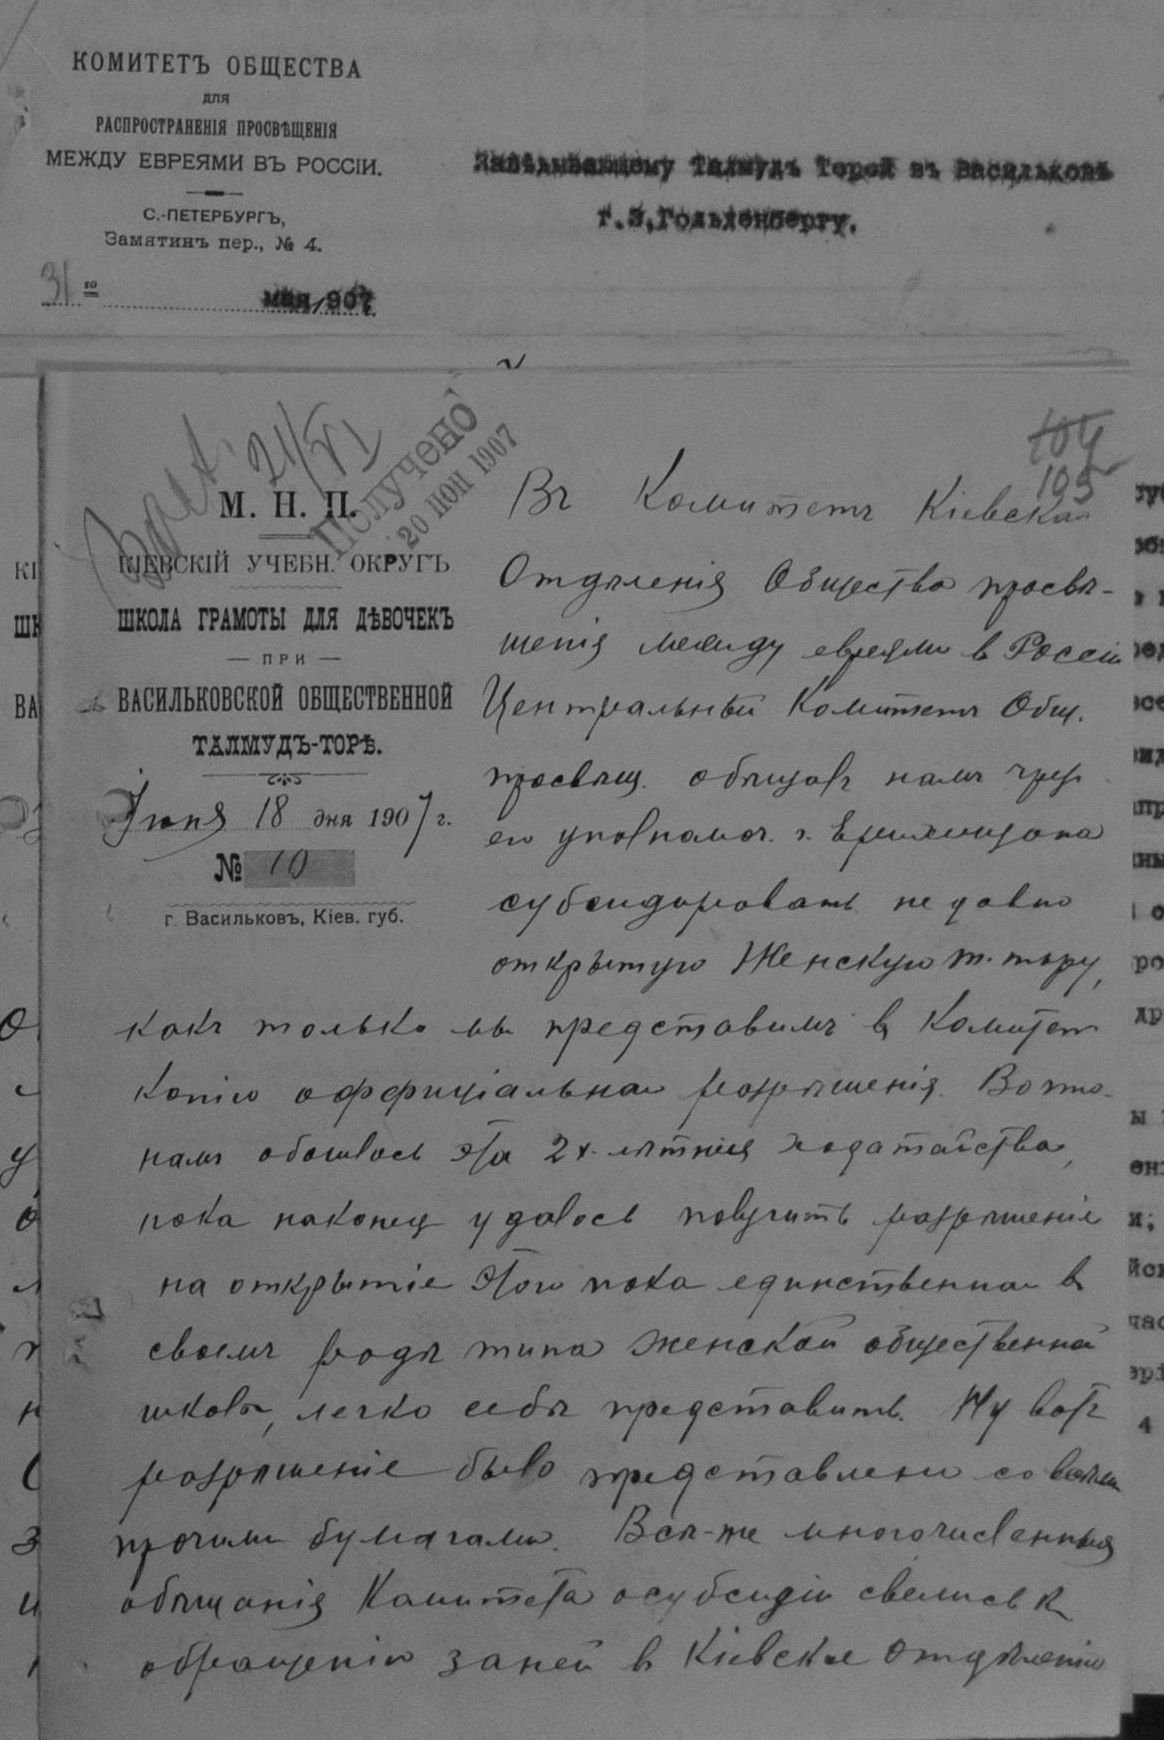 КОМИТЕТЪ ОБЩЕСТВА
для
РАСПРОСТРАНЕНІЯ ПРОСВѢЩЕНІЯ
МЕЖДУ ЕВРЕЯМИ ВЪ РОССІИ.
С.-ПЕТЕРБУРГЪ,
Замятинъ пер., № 4.
31го мая 1907
Завѣдывающему Талмудъ Торой въ Васильковѣ
г.З.Гольденбергу.
21/VI
Получено
20 ІЮН 1907
104
105
М. Н. П.
КІЕВСКІЙ УЧЕБН. ОКРУГЪ
ШКОЛА ГРАМОТЫ ДЛЯ ДѢВОЧЕКЪ
— ПРИ —
ВАСИЛЬКОВСКОЙ ОБЩЕСТВЕННОЙ
ТАЛМУДЪ-ТОРѢ.
Іюня 18 дня 1907 г.
№ 10
г. Васильковъ, Кіев. губ.
Въ Комитетъ Кіевскаго
Отдѣленія Общества просвѣ-
щенія между евреями в Россіи
Центральный Комитетъ Общ.
просвѣщ. обѣщавъ намъ чрез
его уполномоч. г.
субсидировать недавно
открытую Женскую т. тору,
какъ только мы представимъ в Комитет
копію оффиціальнаго разрѣшенія. Во что
намъ обошлось эта 2х-лѣтнія ходатайства,
пока наконец удалось получить разрѣшеніе
на открытіе этого пока единственнаго в
своемъ родѣ типа женской общественной
школы, легко себѣ представить. Ну вотъ
разрѣшеніе было представлено со всѣми
прочими бумагами. Всѣ-же многочисленныя
обѣщанія Комитета о субсидіи свелись к
обращенію за ней в Кіевское Отдѣленіе